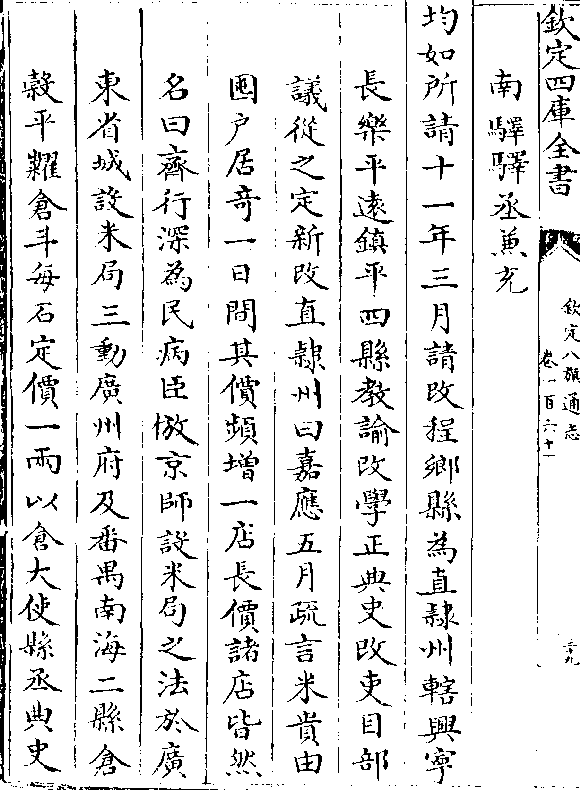 欽定四庫全書
欽定八旗通志
卷一百六十一
三十九
南驛驛丞兼充
均如所請十一年三月請改程鄉縣為直隸州轄興寧
長樂平逺鎮平四縣教諭改學正典史改吏目部
議從之定新改直隸州曰嘉應五月疏言米貴由
囤户居竒一日間其價頻增一店長價諸店皆然
名曰齊行深為民病臣倣京師設米局之法於廣
東省城設米局三動廣州府及番禺南海二縣倉
榖平糶倉斗每石定價一兩以倉大使縣丞典史